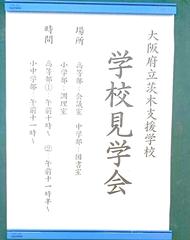 大阪府立茨木支援学校
学校見学会
場所
高等部 会議室 中学部 図書室
小学部 調理室
時間
高等部① 午前十時〜 ② 午前十一時半〜
小中学部 午前十一時〜